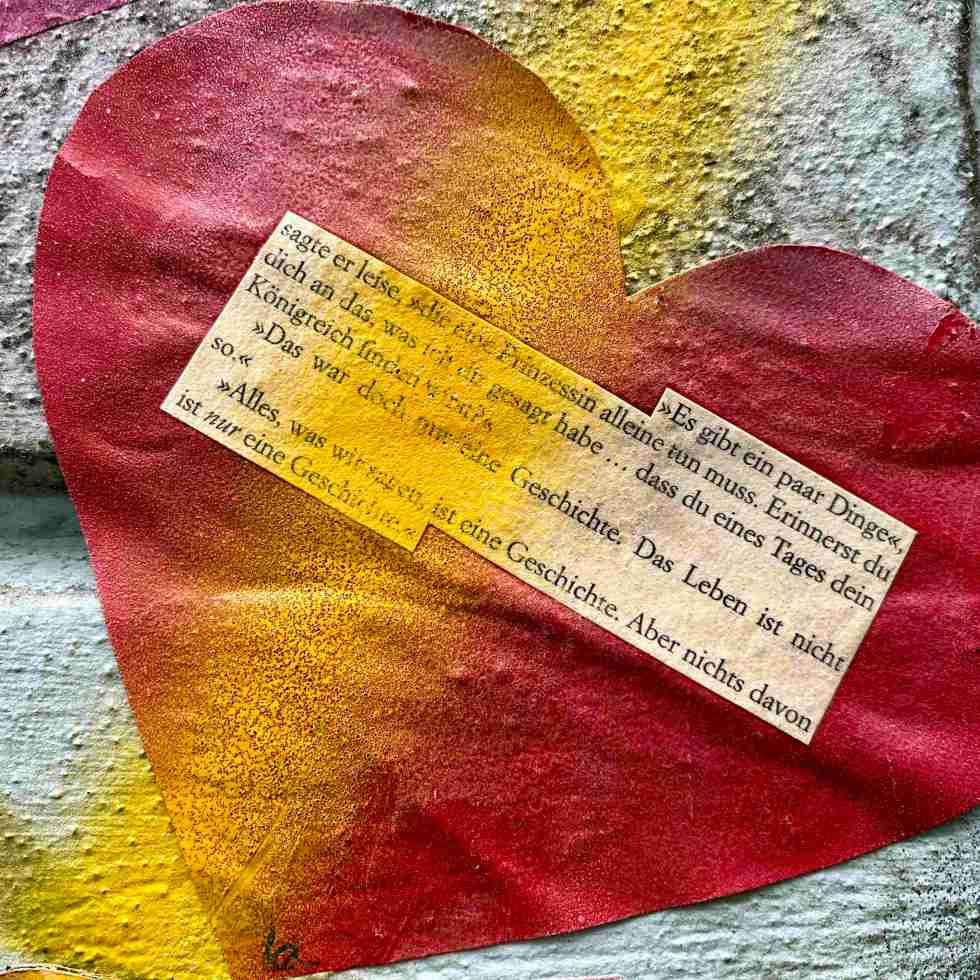 »Es gibt ein paar Dinge«,
sagte er leise, »die eine Prinzessin alleine tun muss. Erinnerst du
dich an das, was ich dir gesagt habe ... dass du eines Tages dein
Königreich finden wirst?«
»Das war doch nur eine Geschichte. Das Leben ist nicht
so.«
»Alles, was wir sagen, ist eine Geschichte. Aber nichts davon
ist nur eine Geschichte.«